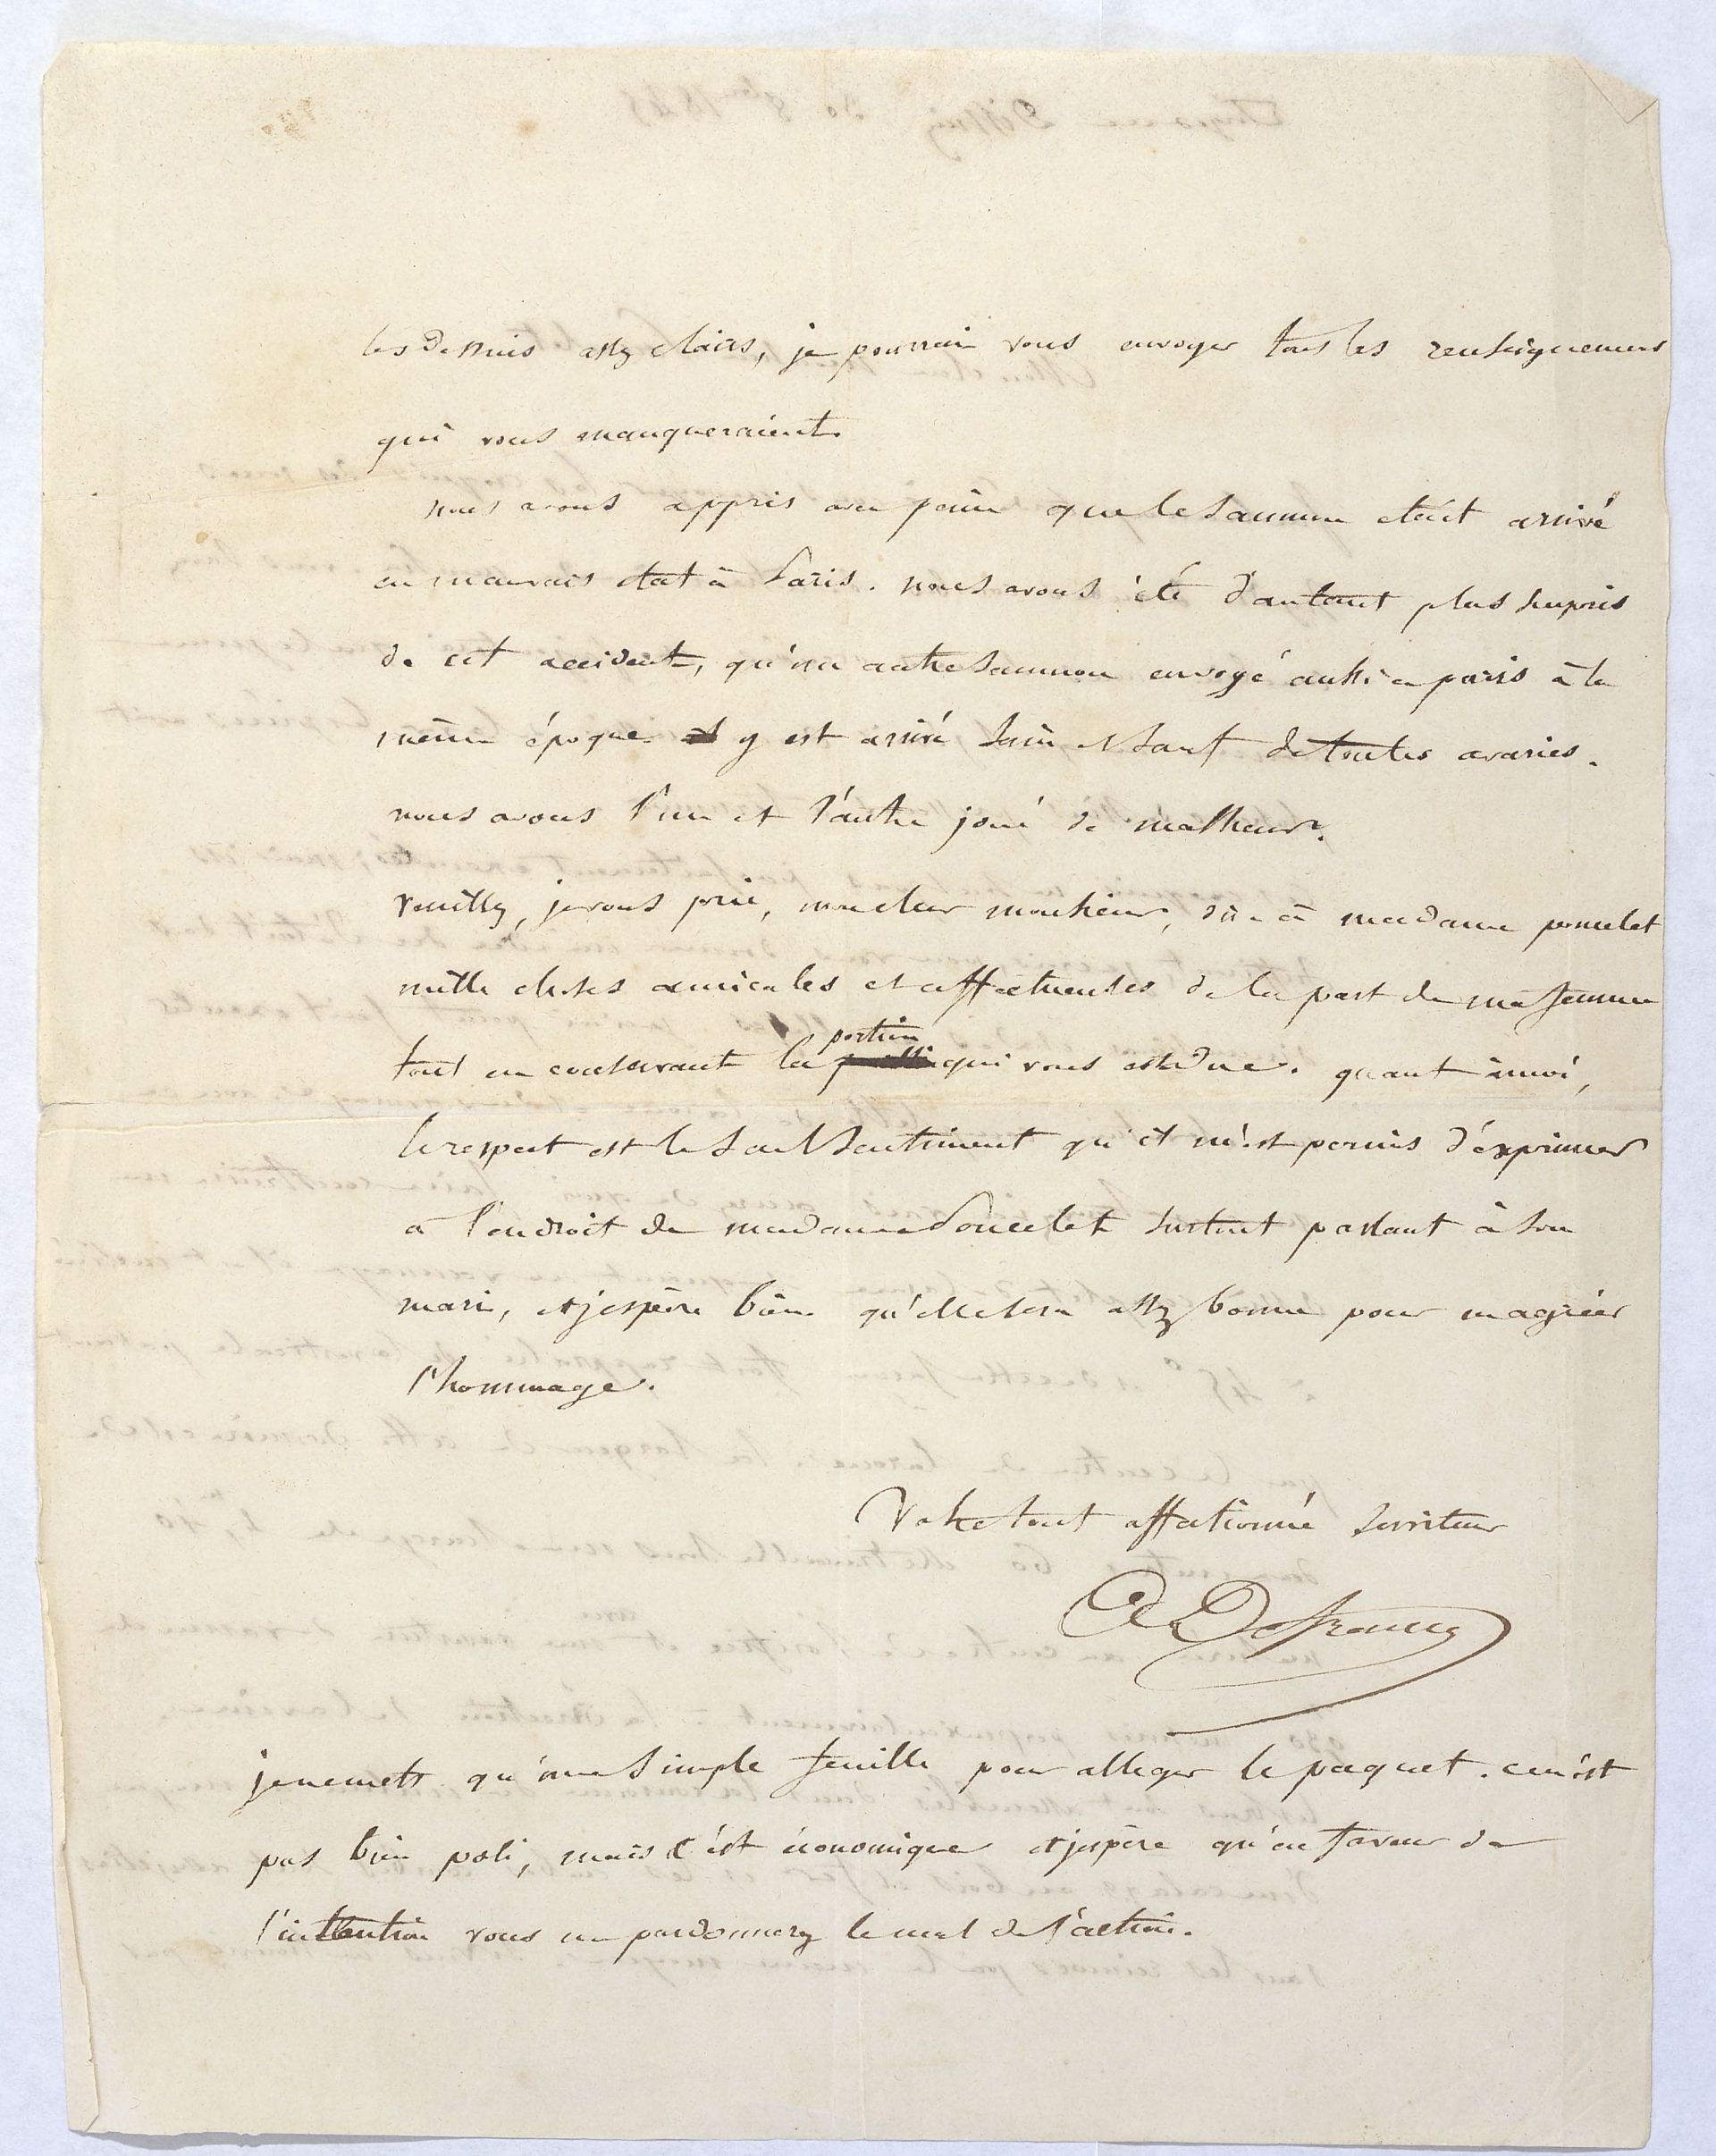 les dessins assez clairs, je pourrais vous envoyer tous les renseignemens
qui vous manqueraient.
nous avons appris avec peine que le saumon etait arrivé
en mauvais état à Paris. nous avons été d'autant plus surpris
de cet accident, qu'un autre saumon envoyé aussi a paris à la
même époque y est arrivé sain et sauf de toutes avaries.
nous avons l'un et l'autre joué de malheur.
Veuillez, je vous prie, mon cher monsieur, dire à madame poncelet
mille choses amicales et affectueuses de la part de ma femme
tout en conservant la portion qui vous est due. quant à moi,
le respect est le seul sentiment qu'il m'est permis d'exprimer
a l'endroit de madame Poncelet surtout parlant à son
mari, et j'espère bien qu'elle sera assez bonne pour m'agréer
l'hommage.
Votre tout affectionné serviteur
je ne mets qu'une simple feuille pour alleger le paquet. ce n'est
pas bien poli, mais c'est économique et j'espère qu'en faveur de
l'intention vous me pardonnerez le mal de l'action.